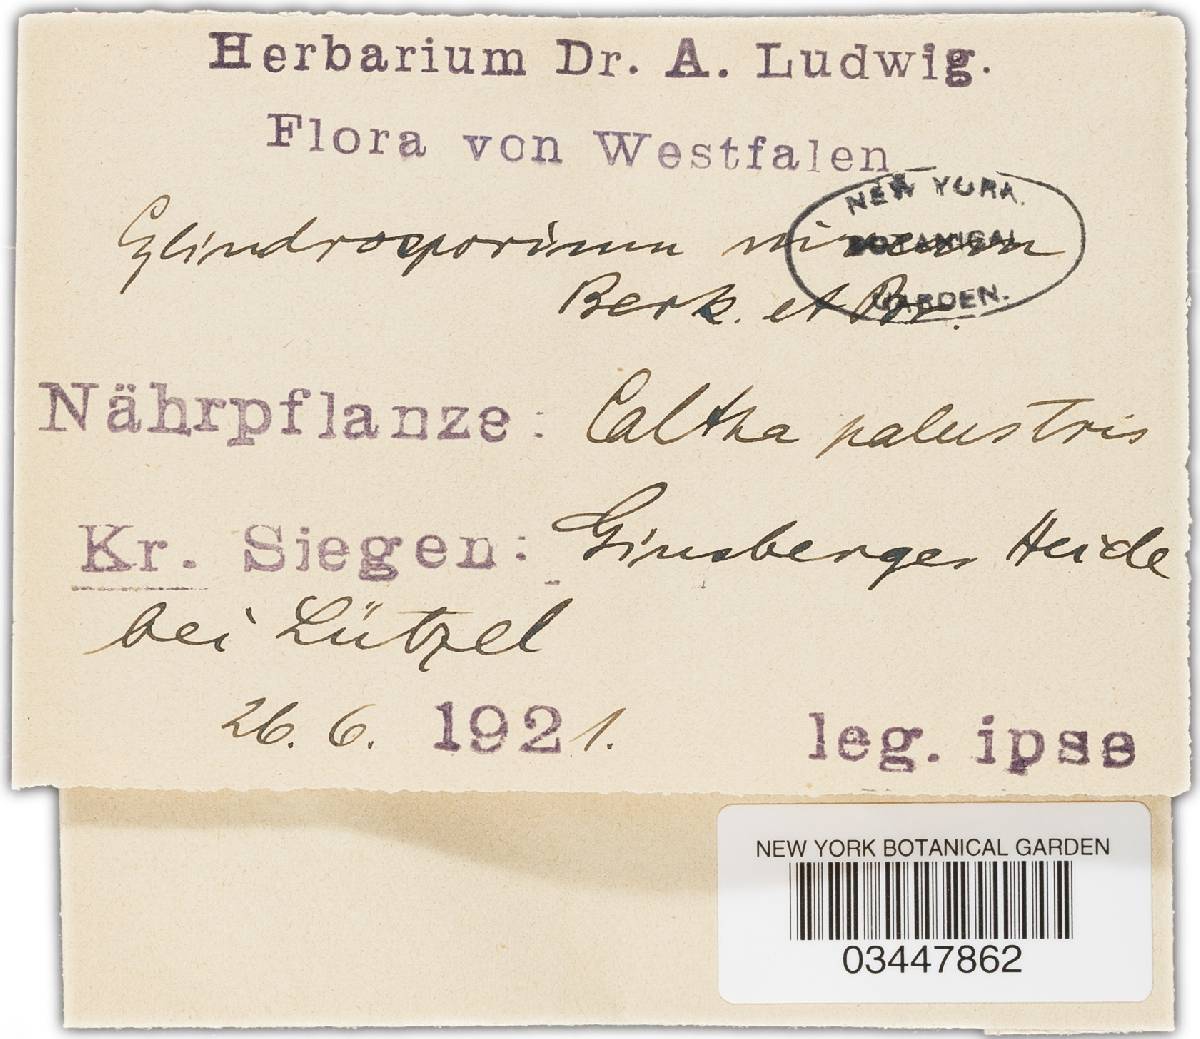 Herbarium Dr. A. Ludwig.
Flora von Westfalen
Cylindrosporium niveum
Berk. et Br.
NEW YORK
BOTANICAL
GARDEN.
Nährpflanze: Caltha palustris
Kr. Siegen: Ginsberger Heide
bei Lützel
26. 6. 1921.
leg. ipse
NEW YORK BOTANICAL GARDEN
03447862